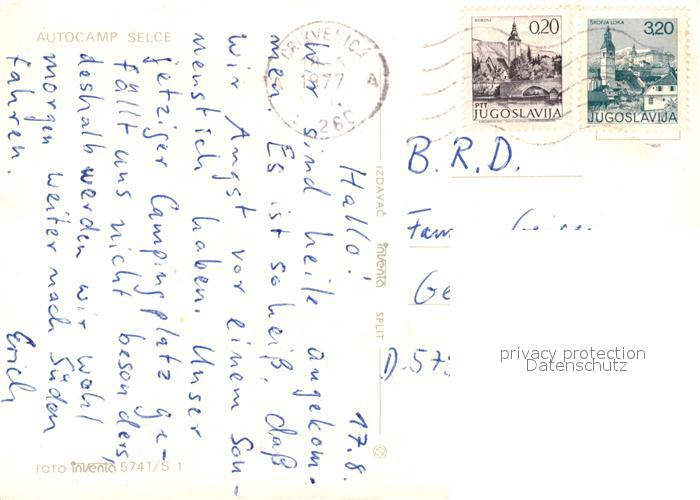 AUTOCAMP SELCE
Hallo! 17.8.
Wir sind heile angekom-
men. Es ist so heiß, daß
wir Angst vor einem Son-
nenstich haben. Unser
jetziger Campingplatz ge-
fällt uns nicht besonders,
deshalb werden wir wohl
morgen weiter nach Süden
fahren. Erich
FOTO inventa 5741/S-1
IZDAVAČ inventa SPLIT
CRIKVENICA
1977
BOHINJ
0,20
PTT
JUGOSLAVIJA
ŠKOFJA LOKA
3,20
JUGOSLAVIJA
B.R.D.
Fam
Ge
D-575
privacy protection
Datenschutz